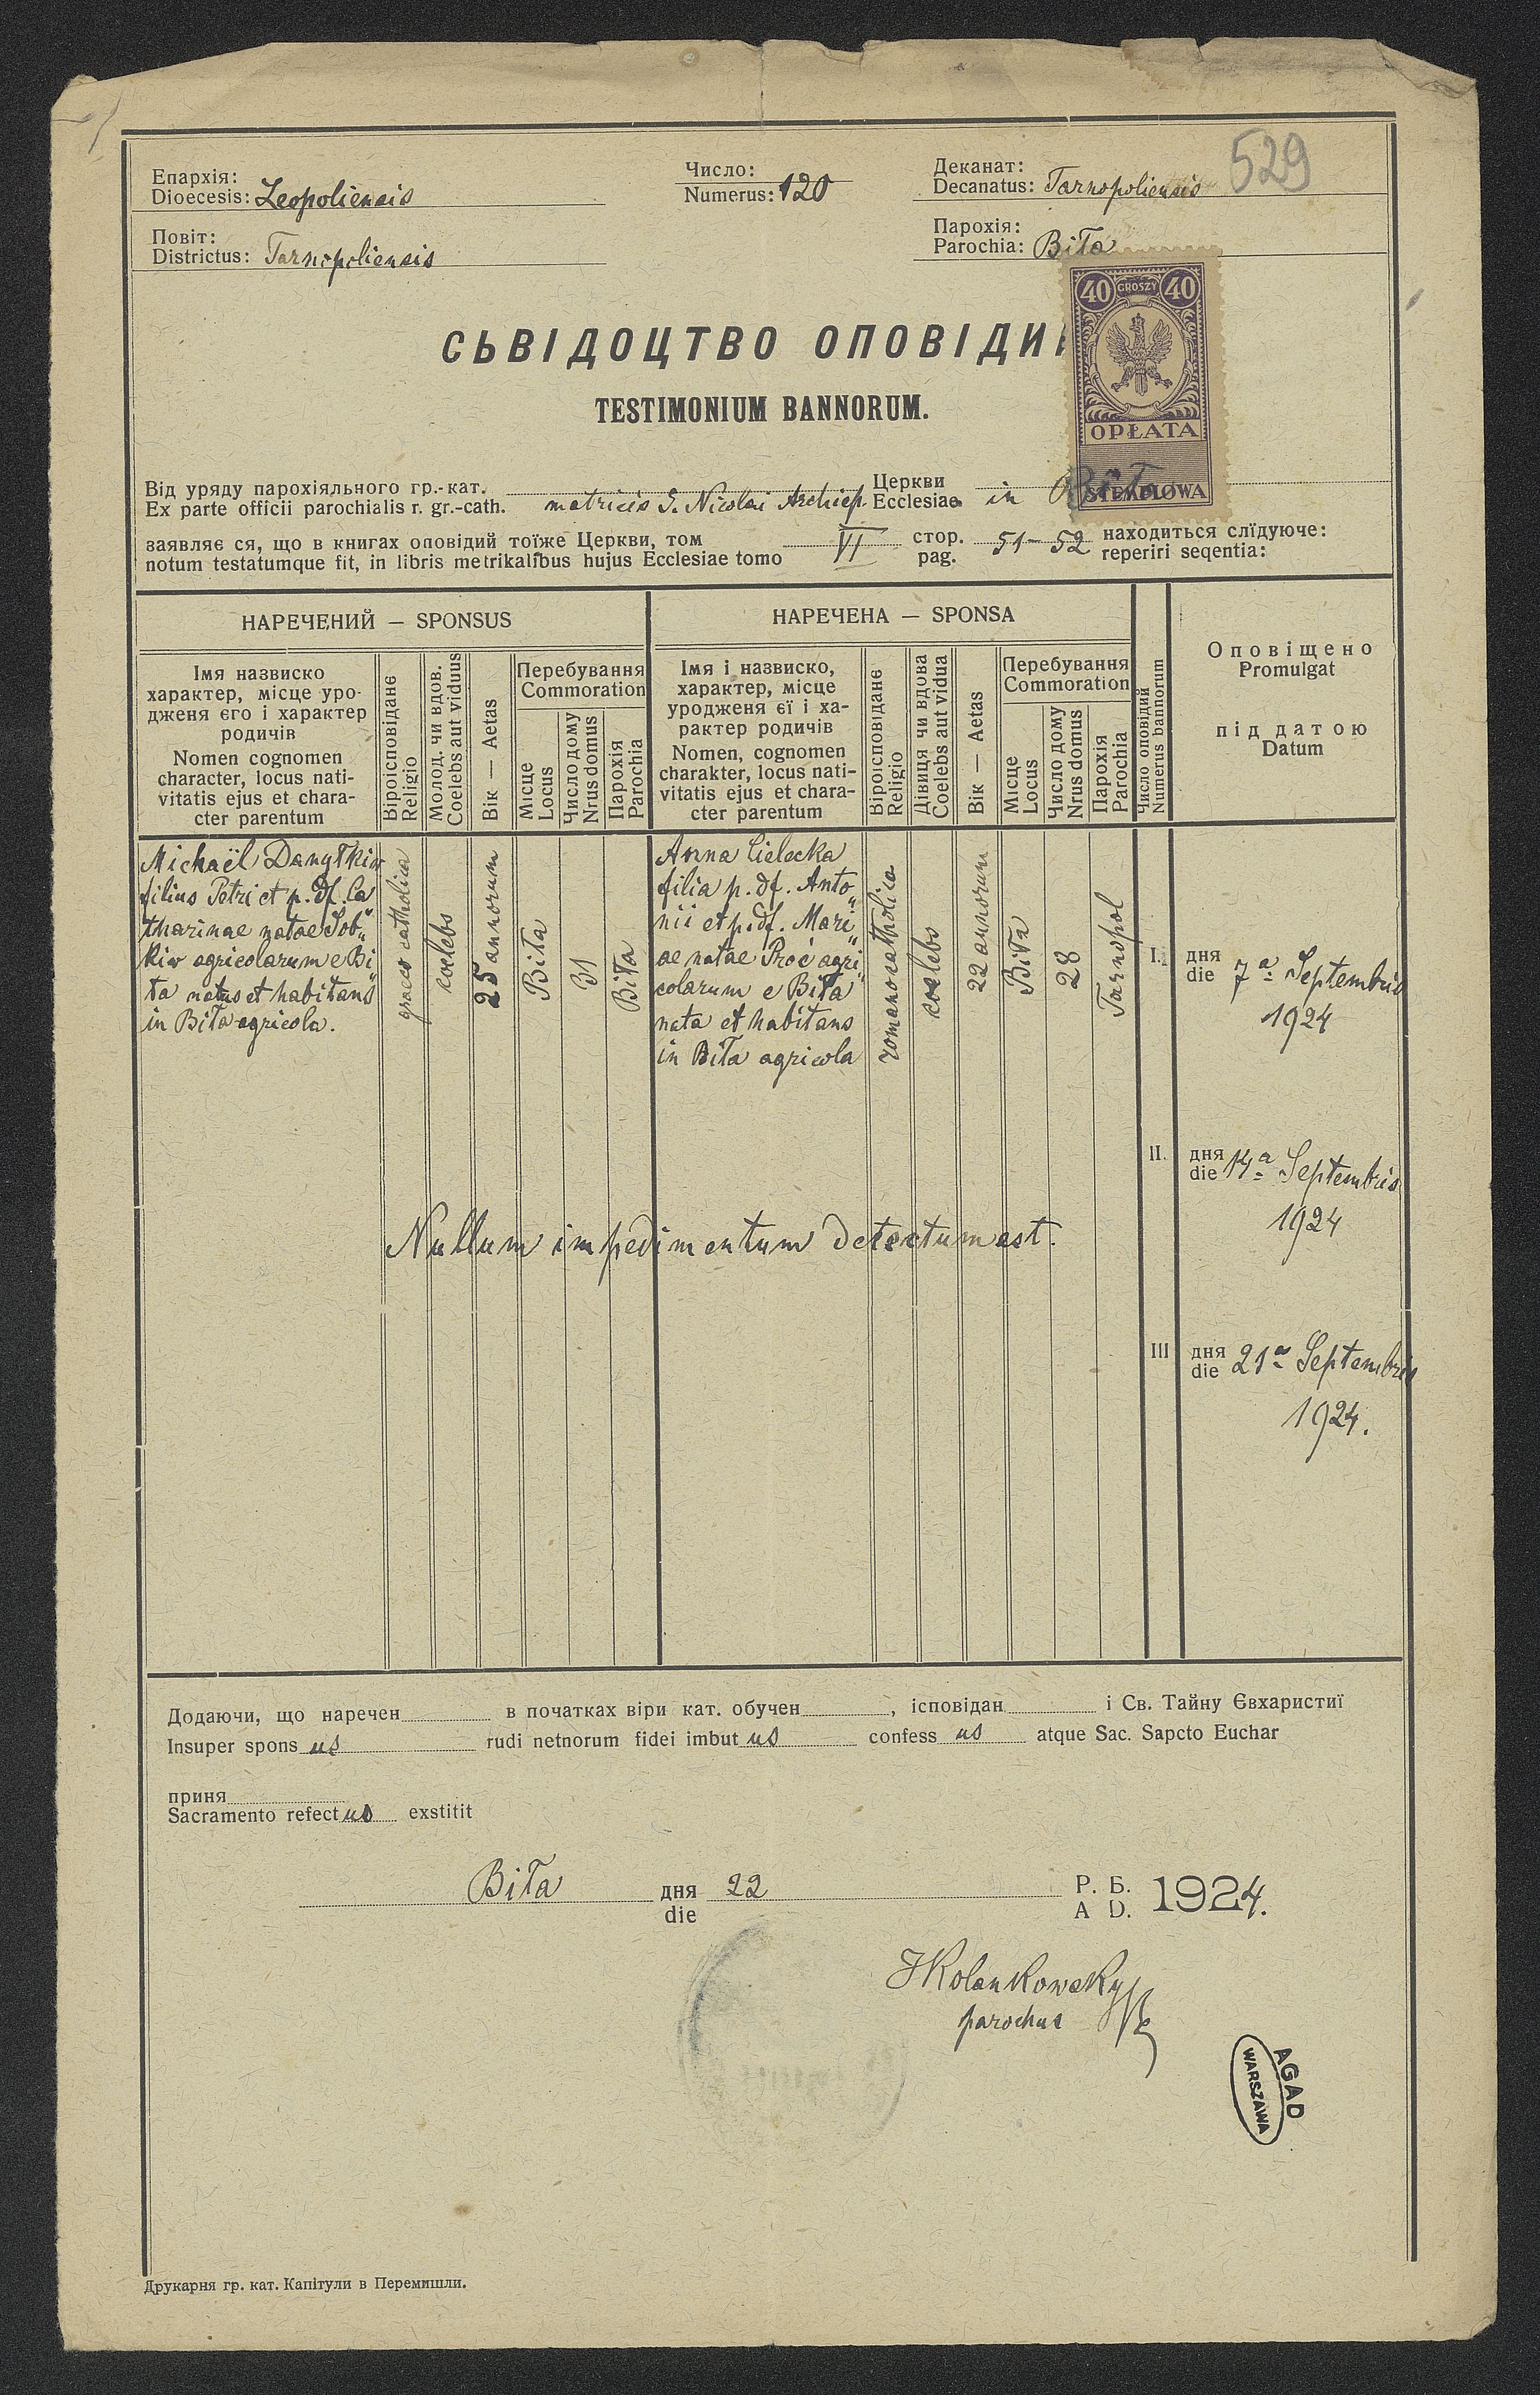 529
Епархія:
Dioecesis: Leopoliensis
Число:
Numerus: 120
Деканат:
Decanatus: Tarnopoliensis
Повіт:
Districtus: Tarnopoliensis
Парохія:
Parochia: Biła
40 GROSZY 40
OPŁATA
STEMPLOWA
СЬВІДОЦТВО ОПОВІДИ
TESTIMONIUM BANNORUM.
Від уряду парохіяльного гр.-кат. Церкви
Ex parte officii parochialis r. gr.-cath. matricis S. Nicolai Archiep. Ecclesiae in Biła
заявляє ся, що в книгах оповідий тоїже Церкви, том VI стор. 51-52 находиться слїдуюче:
notum testatumque fit, in libris metrikalibus hujus Ecclesiae tomo pag. reperiri seqentia:
НАРЕЧЕНИЙ — SPONSUS
НАРЕЧЕНА — SPONSA
Імя назвиско
характер, місце уро-
дженя єго і характер
родичів
Nomen cognomen
character, locus nati-
vitatis ejus et chara-
cter parentum
Віроісповіданє
Religio
Молод. чи вдов.
Coelebs aut viduus
Вік — Aetas
Перебування
Commoration
Місце
Locus
Число дому
Nrus domus
Парохія
Parochia
Імя і назвиско,
характер, місце
уродженя єї і ха-
рактер родичів
Nomen, cognomen
charakter, locus nati-
vitatis ejus et chara-
cter parentum
Віроісповіданє
Religio
Дівиця чи вдова
Coelebs aut vidua
Вік — Aetas
Перебування
Commoration
Місце
Locus
Число дому
Nrus domus
Парохія
Parochia
Число оповідий
Numerus bannorum
Оповіщено
Promulgat
під датою
Datum
Michaël Danyłkiw
filius Petri et p. df. Ca
tharinae natae Sob„
kiw agricolarum e Bi„
ła natus et habitans
in Biła agricola.
graeco catholica
coelebs
25 annorum
Biła
31
Biła
Anna Cielecka
filia p. df. Anto„
nii et p. df. Mari„
ae natae Proć agri„
colarum e Biła
nata et habitans
in Biła agricola
romano catholica
coelebs
22 annorum
Biła
28
Tarnopol
I. дня
die 7ª Septembris
1924
II. дня
die 14ª Septembris
1924
Nullum impedimentum detectum est.
III дня
die 21ª Septembris
1924.
Додаючи, що наречен в початках віри кат. обучен , ісповідан і Св. Тайну Євхаристиї
Insuper spons us rudi netnorum fidei imbut us confess us atque Sac. Sapcto Euchar
приня
Sacramento refect us exstitit
Biła дня 22 Р. Б. 1924.
die A D.
JKolankowsky
parochus
AGAD
WARSZAWA
Друкарня гр. кат. Капітули в Перемишли.